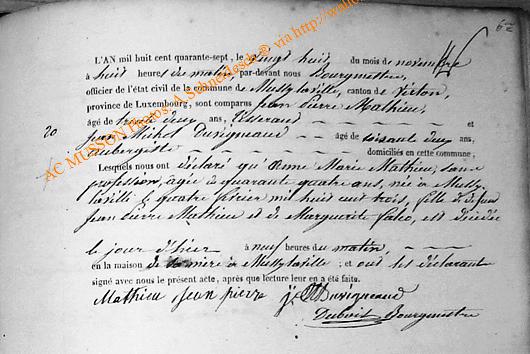 L'AN mil huit cent quarante-sept, le vingt huit du mois de novembre
à huit heures du matin, par-devant nous Bourgmestre,
officier de l'état civil de la commune de Mussy-la-ville, canton de Virton,
province de Luxembourg, sont comparus Jean Pierre Mathieu,
âgé de trente deux ans, Tisserand et
20
Jean Michel Duvigneaud âgé de soixante deux ans,
aubergiste domiciliés en cette commune,
Lesquels nous ont déclaré que Marie Mathieu, sans
profession, âgée de quarante quatre ans, née à Mussy-
laville le quatre février mil huit cent trois, fille de feu
Jean Pierre Mathieu et de Marguerite, est décédée
le jour d'hier à neuf heures du matin,
en la maison de sa mère à Mussy-laville; et ont les déclarant
signé avec nous le présent acte, après que lecture leur en a été faite.
Mathieu Jean pierre j M Duvigneaud
Dubois Bourgmestre
AC MUSSON Photos A. Schneidesch @ via http://